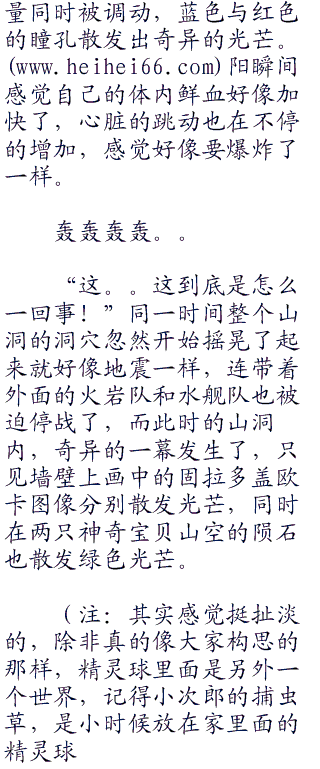 量同时被调动，蓝色与红色
的瞳孔散发出奇异的光芒。
(www.heihei66.com)阳瞬间
感觉自己的体内鲜血好像加
快了，心脏的跳动也在不停
的增加，感觉好像要爆炸了
一样。
轰轰轰轰。。
“这。。这到底是怎么
一回事！”同一时间整个山
洞的洞穴忽然开始摇晃了起
来就好像地震一样，连带着
外面的火岩队和水舰队也被
迫停战了，而此时的山洞
内，奇异的一幕发生了，只
见墙壁上画中的固拉多盖欧
卡图像分别散发光芒，同时
在两只神奇宝贝山空的陨石
也散发绿色光芒。
（注：其实感觉挺扯淡
的，除非真的像大家构思的
那样，精灵球里面是另外一
个世界，记得小次郎的捕虫
草，是小时候放在家里面的
精灵球